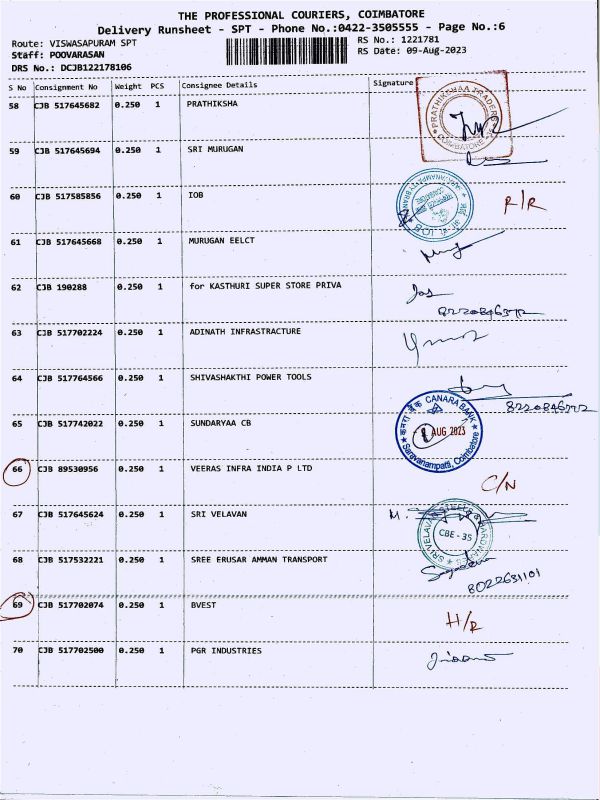 THE PROFESSIONAL COURIERS, COIMBATORE
Delivery Runsheet - SPT - Phone No.:0422-3505555 - Page No.:6
Route: VISWASAPURAM SPT
RS No.: 1221781
Staff: POOVARASAN
RS Date: 09-Aug-2023
DRS No.: DCJB122178106
S No Consignment No Weight PCS Consignee Details Signature
58 CJB 517645682 0.250 1 PRATHIKSHA
PRATHIKSHAA TRADERS
COIMBATORE
59 CJB 517645694 0.250 1 SRI MURUGAN
60 CJB 517585856 0.250 1 IOB R/R
IOB
61 CJB 517645668 0.250 1 MURUGAN EELCT
62 CJB 190288 0.250 1 for KASTHURI SUPER STORE PRIVA
63 CJB 517702224 0.250 1 ADINATH INFRASTRACTURE
64 CJB 517764566 0.250 1 SHIVASHAKTHI POWER TOOLS
65 CJB 517742022 0.250 1 SUNDARYAA CB
केनरा बैंक CANARA BANK
AUG 2023
Saravanampatti, Coimbatore
66 CJB 89530956 0.250 1 VEERAS INFRA INDIA P LTD C/N
67 CJB 517645624 0.250 1 SRI VELAVAN
SRI VELAVAN STEELS & HARDWARES
CBE - 35
68 CJB 517532221 0.250 1 SREE ERUSAR AMMAN TRANSPORT
8022631101
69 CJB 517702074 0.250 1 BVEST H/R
70 CJB 517702500 0.250 1 PGR INDUSTRIES